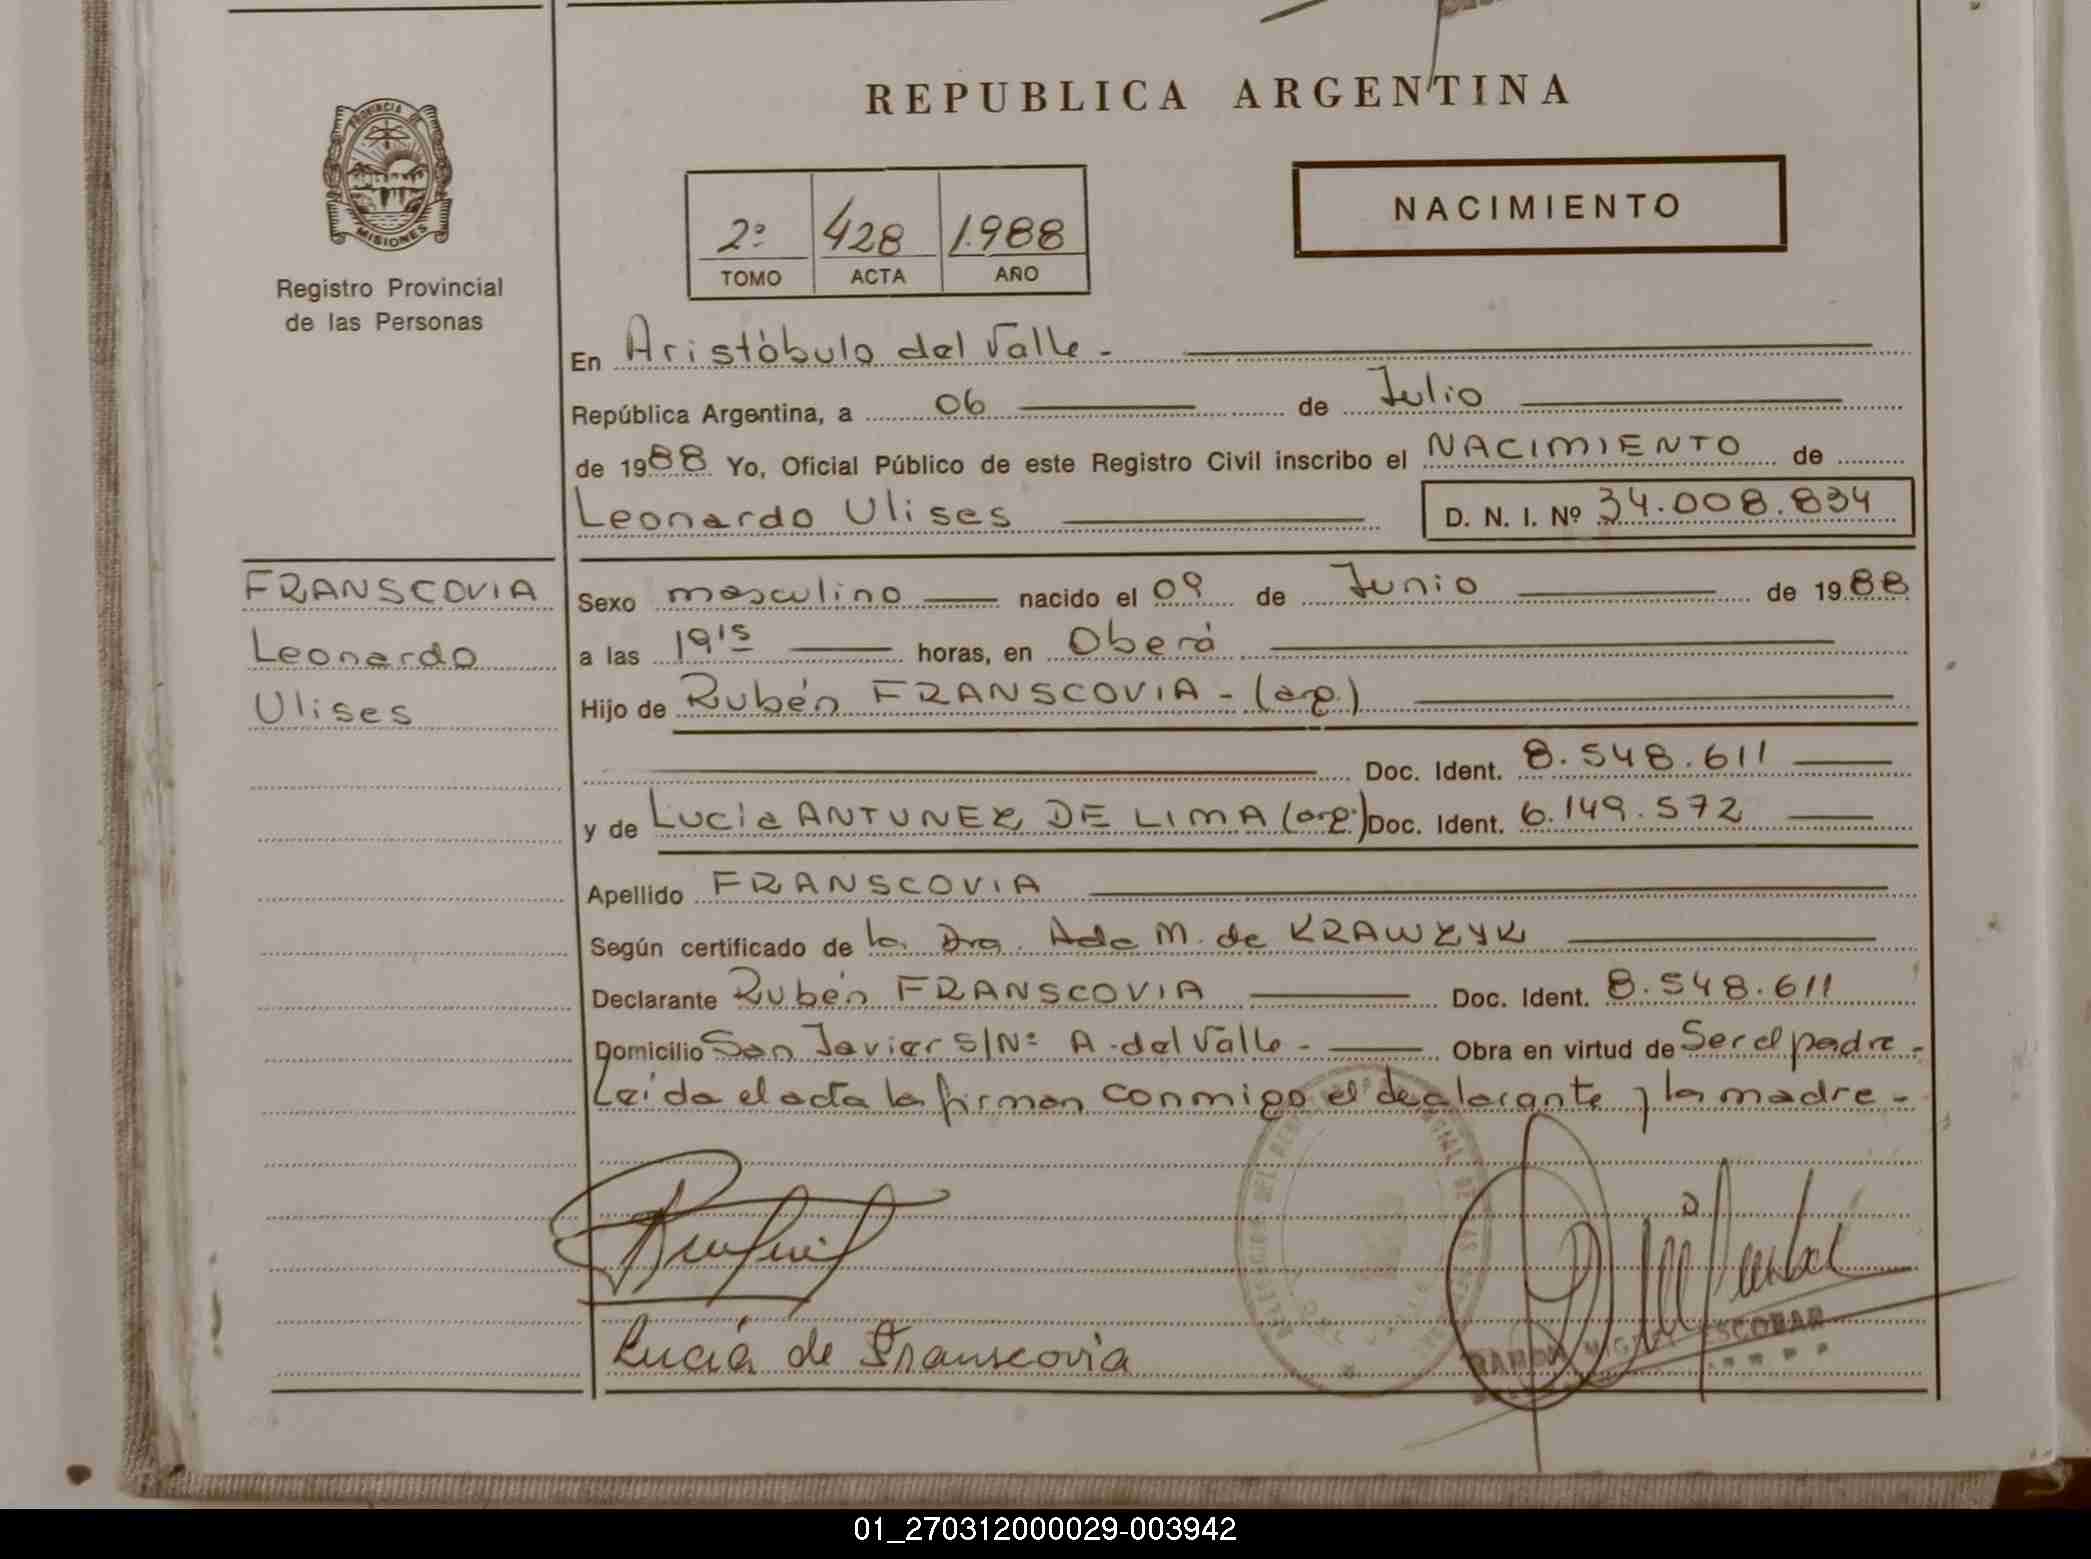 PROVINCIA DE
MISIONES
Registro Provincial
de las Personas
REPUBLICA ARGENTINA
2º 428 1.988
TOMO ACTA AÑO
NACIMIENTO
En Aristóbulo del Valle -
República Argentina, a 06 de Julio
de 1988 Yo, Oficial Público de este Registro Civil inscribo el NACIMIENTO de
Leonardo Ulises D. N. I. Nº 34.008.834
FRANSCOVIA
Leonardo
Ulises
Sexo masculino nacido el 09 de Junio de 1988
a las 19 15 horas, en Oberá
Hijo de Rubén FRANSCOVIA - (arg.)
Doc. Ident. 8.548.611
y de Lucía ANTUNEZ DE LIMA (arg.) Doc. Ident. 6.149.572
Apellido FRANSCOVIA
Según certificado de la Dra. Ada M. de KRAWZYK
Declarante Rubén FRANSCOVIA Doc. Ident. 8.548.611
Domicilio San Javier S/Nº A. del Valle - Obra en virtud de Ser el padre -
Leída el acta la firman conmigo el declarante y la madre -
Lucía de Franscovia
RAMON MIGUEL ESCOBAR
01_270312000029-003942